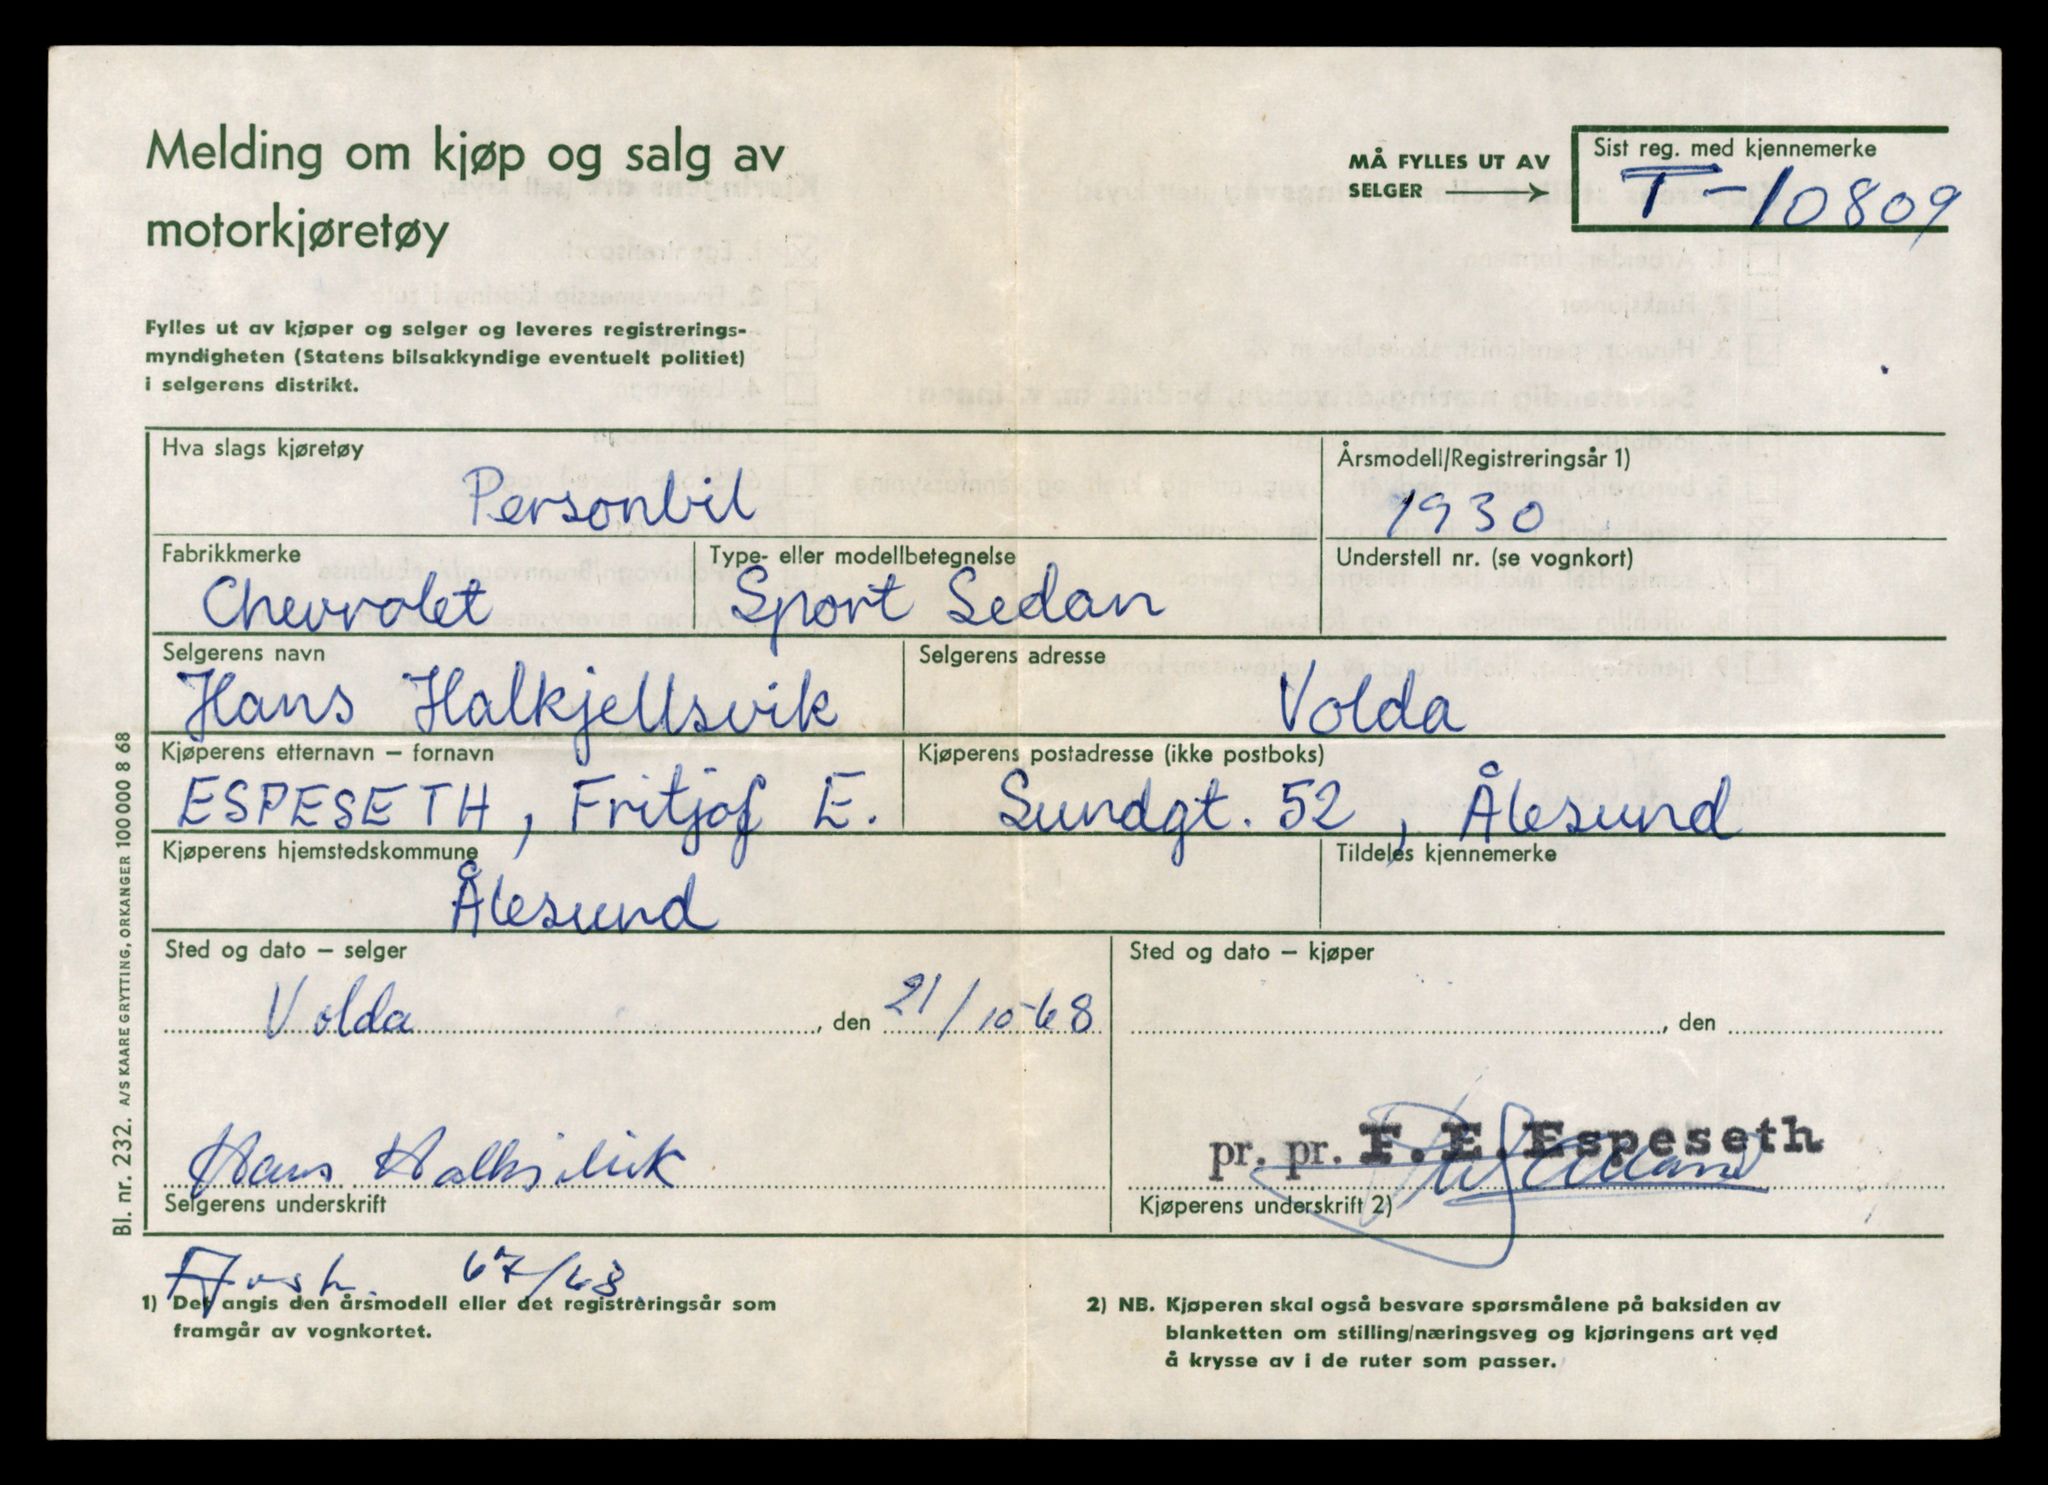 Melding om kjøp og salg av
motorkjøretøy
MÅ FYLLES UT AV
SELGER
Sist reg. med kjennemerke
T-10809
Fylles ut av kjøper og selger og leveres registrerings-
myndigheten (Statens bilsakkyndige eventuelt politiet)
i selgerens distrikt.
Hva slags kjøretøy
Personbil
Årsmodell/Registreringsår 1)
1930
Fabrikkmerke
Chevrolet
Type- eller modellbetegnelse
Sport Sedan
Understell nr. (se vognkort)
Selgerens navn
Hans Halkjellsvik
Selgerens adresse
Volda
Kjøperens etternavn – fornavn
ESPESETH, Fritjof E.
Kjøperens postadresse (ikke postboks)
Sundgt. 52, Ålesund
Kjøperens hjemstedskommune
Ålesund
Tildeles kjennemerke
Sted og dato – selger
Volda, den 21/10-68
Sted og dato – kjøper
, den
Hans Halkjellsvik
Selgerens underskrift
pr. pr. F. E. Espeseth
Kjøperens underskrift 2)
67/68
1) Det angis den årsmodell eller det registreringsår som
framgår av vognkortet.
2) NB. Kjøperen skal også besvare spørsmålene på baksiden av
blanketten om stilling/næringsveg og kjøringens art ved
å krysse av i de ruter som passer.
Bl. nr. 232. A/S KAARE GRYTTING, ORKANGER 100 000 8 68